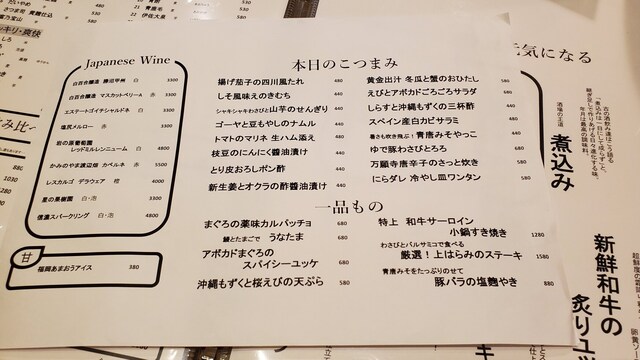 Japanese Wine
白百合醸造 勝沼甲州 白 3300
白百合醸造 マスカットベリーA 赤 3300
エステートゴイチシャルドネ 白 3300
塩尻メルロー 赤 3300
岩の原葡萄園
レッドミルレンニューム 白 4800
かみのやま渡辺畑 カベルネ 赤 5500
レスカルゴ デラウェア 橙 4000
星の果樹園 白・泡 3300
信濃スパークリング 白・泡 4800
甘
福岡あまおうアイス 380
本日のこつまみ
揚げ茄子の四川風たれ 480
しそ風味えのきむち 440
シャキシャキわさびと山芋のせんぎり 440
ゴーヤと豆もやしのナムル 440
トマトのマリネ 生ハム添え 480
枝豆のにんにく醤油漬け 440
とり皮おろしポン酢 440
新生姜とオクラの酢醤油漬け 440
黄金出汁 冬瓜と蟹のおひたし 580
えびとアボカドごろごろサラダ 580
しらすと沖縄もずくの三杯酢 440
スペイン産白カビサラミ 440
暑さも吹き飛ぶ!青唐みそやっこ 440
ゆで豚わさびとろろ 680
万願寺唐辛子のさっと炊き 580
にらダレ 冷やし皿ワンタン 580
一品もの
まぐろの薬味カルパッチョ 680
鰻とたまごで うなたま 680
アボカドまぐろの
スパイシーユッケ 680
沖縄もずくと桜えびの天ぷら 580
特上 和牛サーロイン
小鍋すき焼き 1280
わさびとバルサミコで食べる
厳選!上はらみのステーキ 1580
青唐みそをたっぷりのせて
豚バラの塩麹やき 880
元気になる
酒場の王道
煮込み
新鮮和牛の
炙りユッ